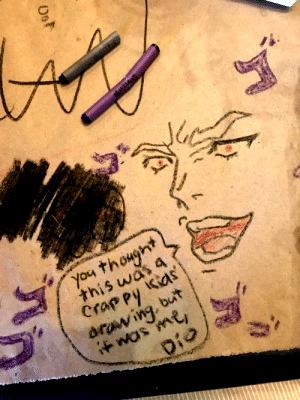 you thought
this was a
crappy kids'
drawing, but
it was me,
Dio